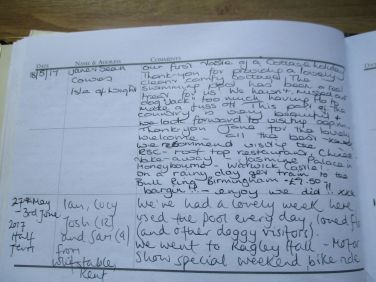 DATE NAME & ADDRESS COMMENTS
Our first taste of a Cottage holiday
Thank-you for providing a lovely
clean & comfy cottage. The
swimming pool has been a real
treat for us. We haven't missed
dog Jack - too much having
make a fuss off. This part of the
country is very beautiful &
we look forward to visiting again
Thank-you Jane for the lovely
welcome - all the best
we recommend visiting the
RSC - roof top restaurant &
take-away Jasmine Palace -
Honeybourne - Warwick Castle -
on a rainy day get train to the
Bull Ring Birmingham - £7.50
bargin! - enjoy we did!! xxx
Jane & Sean
Cowes
Isle of Wight
27th May
- 3rd June
2017
Half
Term
Ian, Lucy
Josh (12)
and Sam (9)
from
Whitstable,
Kent
We've had a lovely week here
used the pool every day, loved
(and other doggy visitors).
We went to Ragley Hall - Motor
Show special weekend, bike ride